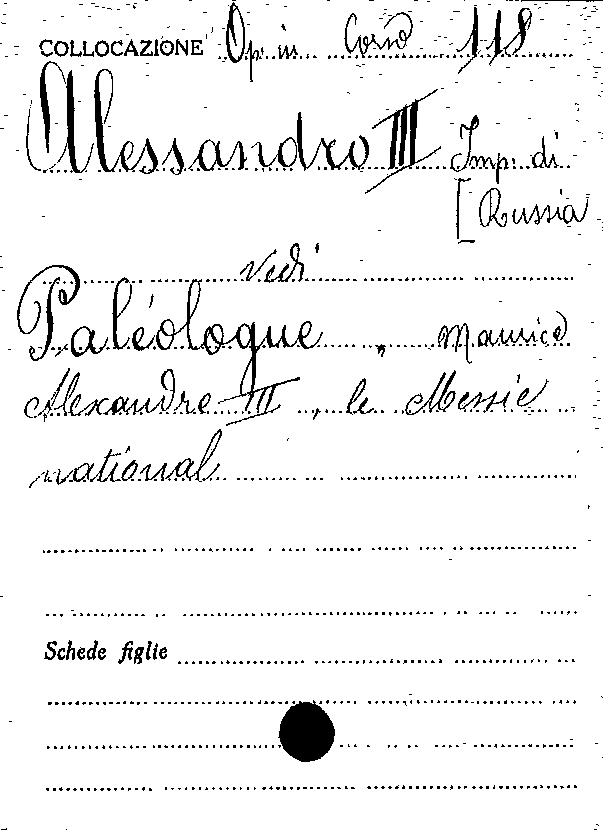 COLLOCAZIONE Op. in Corso 118
Alessandro III Imp. di
[Russia
Vedi
Paléologue, Maurice
Alexandre III, le Messie
national
Schede figlie